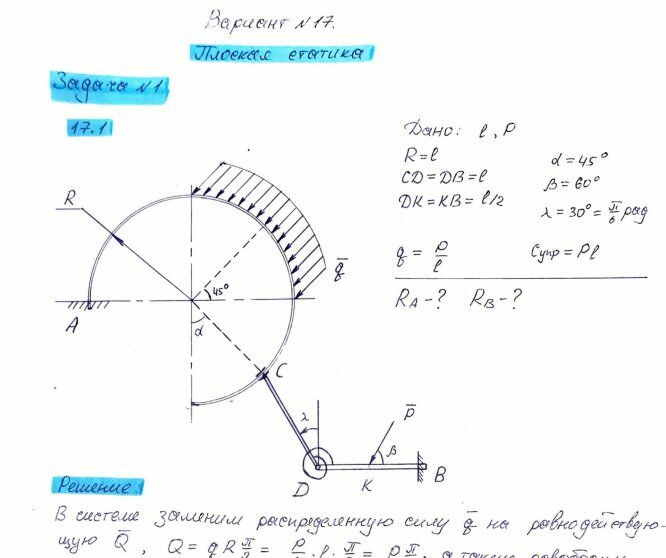 Вариант №17.
Плоская статика
Задача №1.
17.1
Дано: l, P
R=l
α=45°
CD=DB=l
β=60°
DK=KB=l/2
λ=30°=π/6 рад
q = P/l
Cупр=Pl
RA-? RB-?
R
q̄
45°
A
α
C
λ
P̄
β
D
K
B
Решение.
В системе заменим распределенную силу q̄ на равнодейству-
ющую Q̄, Q=qRπ/2= P/l·l·π/2= Pπ/2, а также